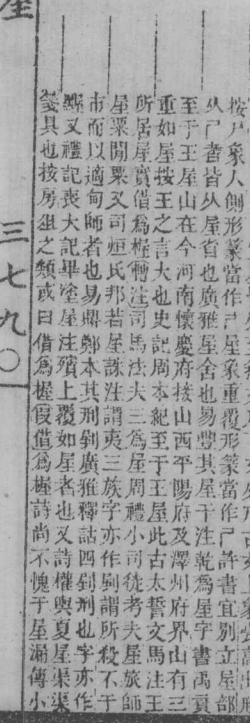 按尸象人側形篆當作𠃜屋象重覆形篆當作𠃜許書宜別立屋部
从𠃜者皆从屋省也廣雅屋舍也易豐其屋干注乾為屋字書禹貢
至于王屋山在今河南懷慶府接山西平陽府及澤州府界山有三
重如屋按王之言大也史記周本紀至于王屋此古太誓文馬注王
所居屋實借為楃幄注司馬法夫三為屋周禮小司徒考夫屋旅師
屋粟閒粟又司烜氏邦若屋誅注謂夷三族字亦作剭謂所殺不于
市而以適甸師者也易鼎鄭本其刑剭廣雅釋詁四剭刑也字亦作
又禮記喪大記畢塗屋注殯上覆如屋者也又詩權輿夏屋渠渠
具也按房俎之類或曰借為楃假借為楃詩尚不愧于屋漏傳小
屋
三七九〇